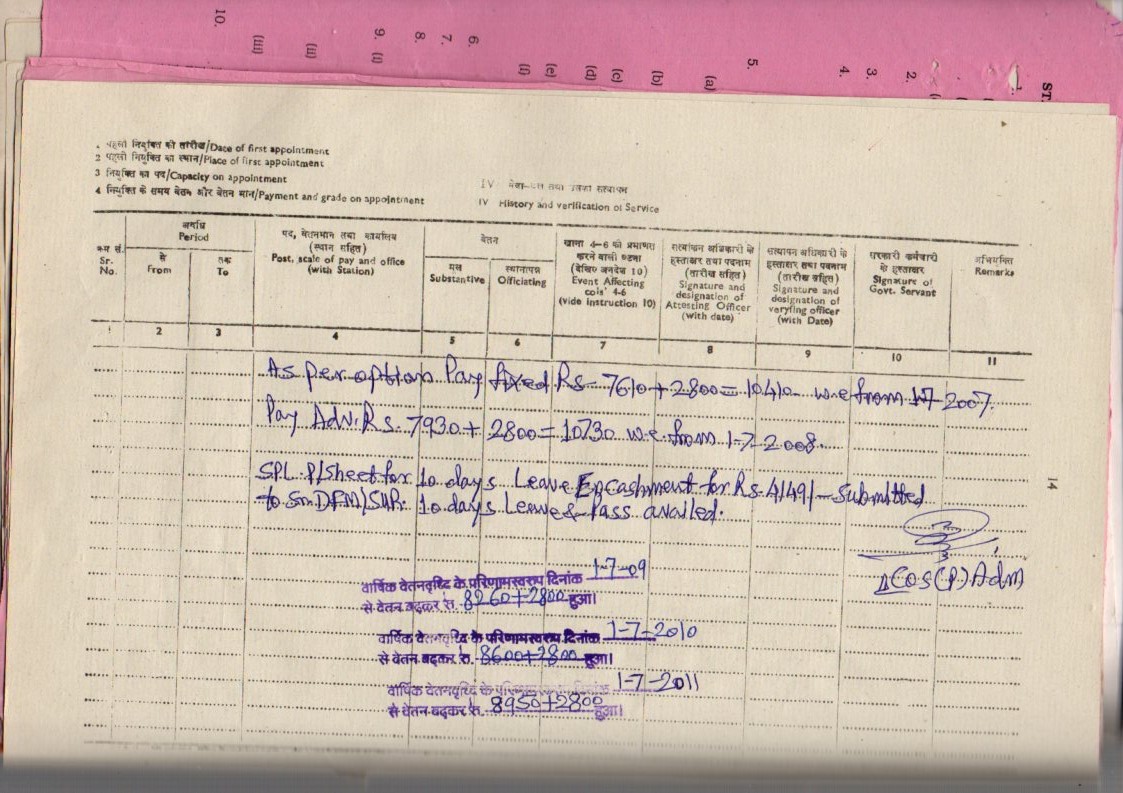 10.
(iii)
(ii)
9. (i)
8.
7.
6.
(f)
(e)
(d)
(c)
(b)
(a)
5.
4.
3.
2.
1.
ST.
1 पहली नियुक्ति की तारीख/Date of first appointment
2 पहली नियुक्ति का स्थान/Place of first appointment
3 नियुक्ति का पद/Capacity on appointment
4 नियुक्ति के समय वेतन और वेतन मान/Payment and grade on appointment
IV History and verification of Service
क्रम सं. Sr. No.
अवधि Period
से From
तक To
पद, वेतनमान तथा कार्यालय (स्थान सहित) Post, scale of pay and office (with Station)
वेतन
मूल Substantive
स्थानापन्न Officiating
खाना 4-6 को प्रभावित करने वाली घटना (देखिए अनुदेश 10) Event Affecting cols' 4-6 (vide instruction 10)
सत्यांकन अधिकारी के हस्ताक्षर तथा पदनाम (तारीख सहित) Signature and designation of Attesting Officer (with date)
सत्यापन अधिकारी के हस्ताक्षर तथा पदनाम (तारीख सहित) Signature and designation of veryfing officer (with Date)
सरकारी कर्मचारी के हस्ताक्षर Signature of Govt. Servant
अभियुक्ति Remarks
1 2 3 4 5 6 7 8 9 10 11
As per option Pay fixed Rs- 7610+2800=10410- w.e from 1-7-2007.
Pay Adv. Rs. 7930+2800=10730 w.e.from 1-7-2008.
SPL. P/Sheet for 10 days Leave Encashment for Rs-4149/- submitted
to Sr.DFM/SUR. 10 days Leave & Pass availed.
14
वार्षिक वेतनवृध्दि के परिणामस्वरुप दिनांक 1-7-09
से वेतन बढ़कर रु. 8260+2800 हुआ।
COS(P) Adm
वार्षिक वेतनवृध्दि के परिणामस्वरुप दिनांक 1-7-2010
से वेतन बढ़कर रु. 8600+2800 हुआ।
वार्षिक वेतनवृध्दि के परिणामस्वरुप दिनांक 1-7-2011
से वेतन बढ़कर रु. 8950+2800 हुआ।